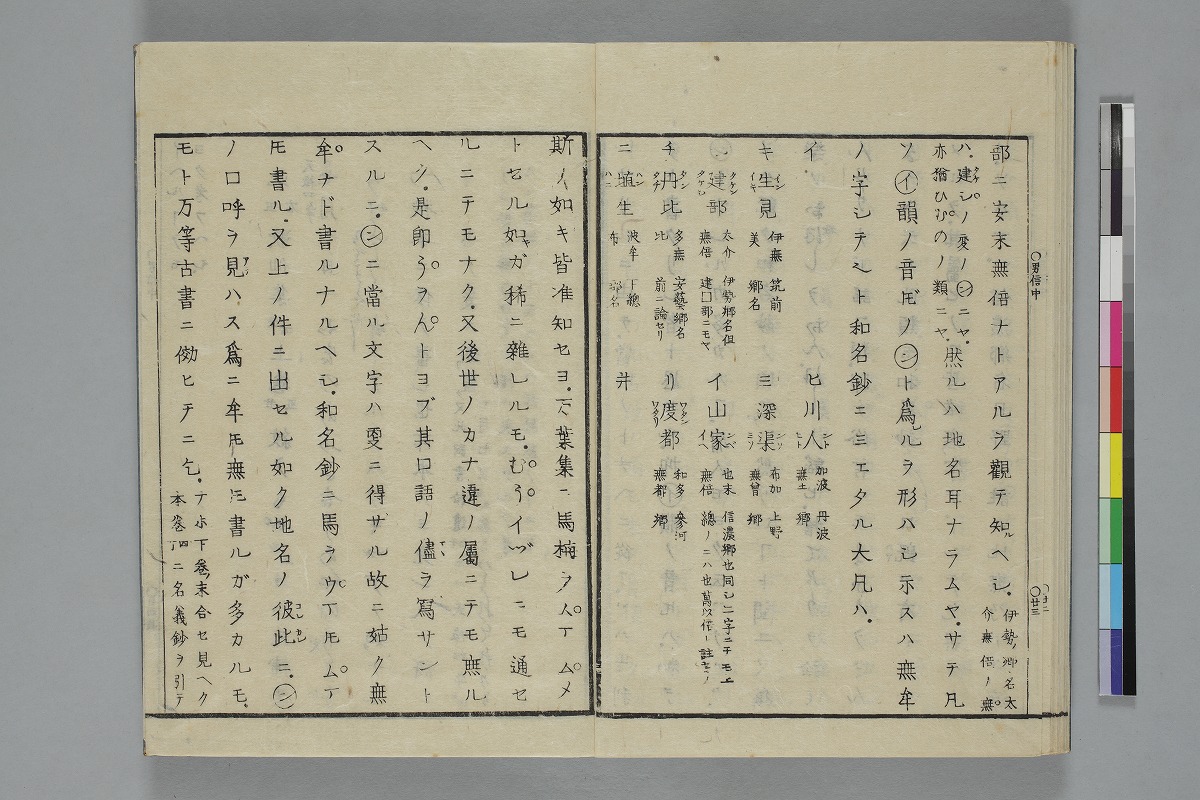 ○男信中
○廿三
部ニ安末無倍ナトアルヲ觀テ知ルヘシ。伊勢ノ郷名太介無倍ノ無
ハ。建シノ変ノ㋛ニヤ。然ルハ地名耳ナラムヤ。サテ凡
亦猶ひむがのノ類ニヤ
ソ㋑韻ノ音ᆢノ㋛ト爲ルヲ形ハシ示スハ無牟
ノ字シテヘト和名鈔ニミエタル大凡ハ。
イ ヒ川人 加波 丹波 無土 郷
キ生見 伊無 筑前 美 郷名 ミ深渠 布加 上野 無曾 郷
シ建部 太介 伊勢郷名但 無倍 建囗部ニモヤ イ山家 也末 信濃郷也同シ二字ニテモ上 無倍 總ノニハ也萬以倍ト註セリ
チ丹比 多無 安藝郷名 比 前ニ論セリ リ度都 和多 參河 無都 郷
ニ埴生 波牟 下總 布 郷名 并
斯ノ如キ皆准知セヨ。万葉集ニ馬楠ヲムマムメ
トセル如キガ稀ニ雜レルモ。むうイヅレニモ通セ
ルニテモナク。又後世ノカナ違ノ屬ニテモ無ル
ヘシ。是即うヲんトヨブ其口語ノ儘ヲ寫サント
スルニ。㋛ニ當ル文字ハ更ニ得サル故ニ姑ク無
牟ナド書ルナルヘシ。和名鈔ニ馬ヲウマトモムマ
トモ書ル。又上ノ件ニ出セル如ク地名ノ彼此ニ。㋛
ノ口呼ヲ見ハス爲ニ牟トモ無トモ書ルガ多カルモ。
モト万等古書ニ傚ヒテニ乞。ナホ下卷ノ末合セ見ヘク
本卷四丁ニ名義鈔ヲ引テ